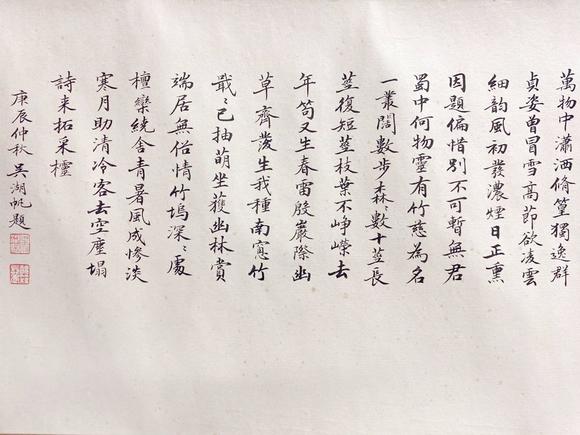 萬物中瀟洒脩篁獨逸群
貞姿曾冒雪高節欲凌雲
細韵風初發濃煙日正熏
因題偏惜別不可暫無君
蜀中何物靈有竹慈為名
一叢闊數步森〻數十莖長
莖復短莖枝葉不崢嶸去
年筍又生春雷殷巖際幽
草齊發生我種南窻竹
戢〻已抽萌坐獲幽林賞
端居無俗情竹塢深〻處
檀欒繞舍青暑風成慘淡
寒月助清泠客去空塵榻
詩来拓采櫺
庚辰仲秋吳湖帆題